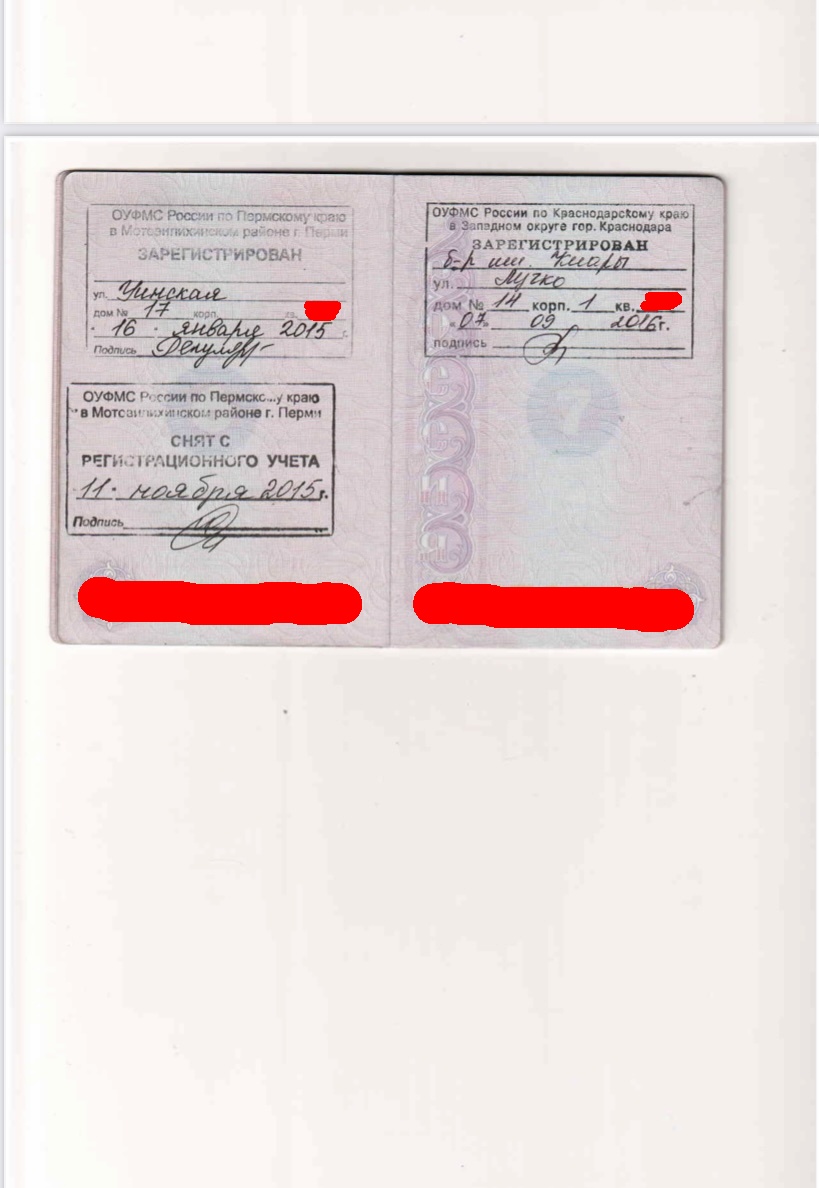 ОУФМС России по Пермскому краю
в Мотовилихинском районе г. Перми
ЗАРЕГИСТРИРОВАН
ул. Уинская
дом № 17 корп. кв.
16 января 2015 г.
Подпись
ОУФМС России по Пермскому краю
в Мотовилихинском районе г. Перми
СНЯТ С
РЕГИСТРАЦИОННОГО УЧЕТА
11 ноября 2015г.
Подпись
ОУФМС России по Краснодарскому краю
в Западном округе гор. Краснодара
ЗАРЕГИСТРИРОВАН
б-р им. Клары
ул. Лучко
дом № 14 корп. 1 кв.
"07" 09 2016г.
подпись
7